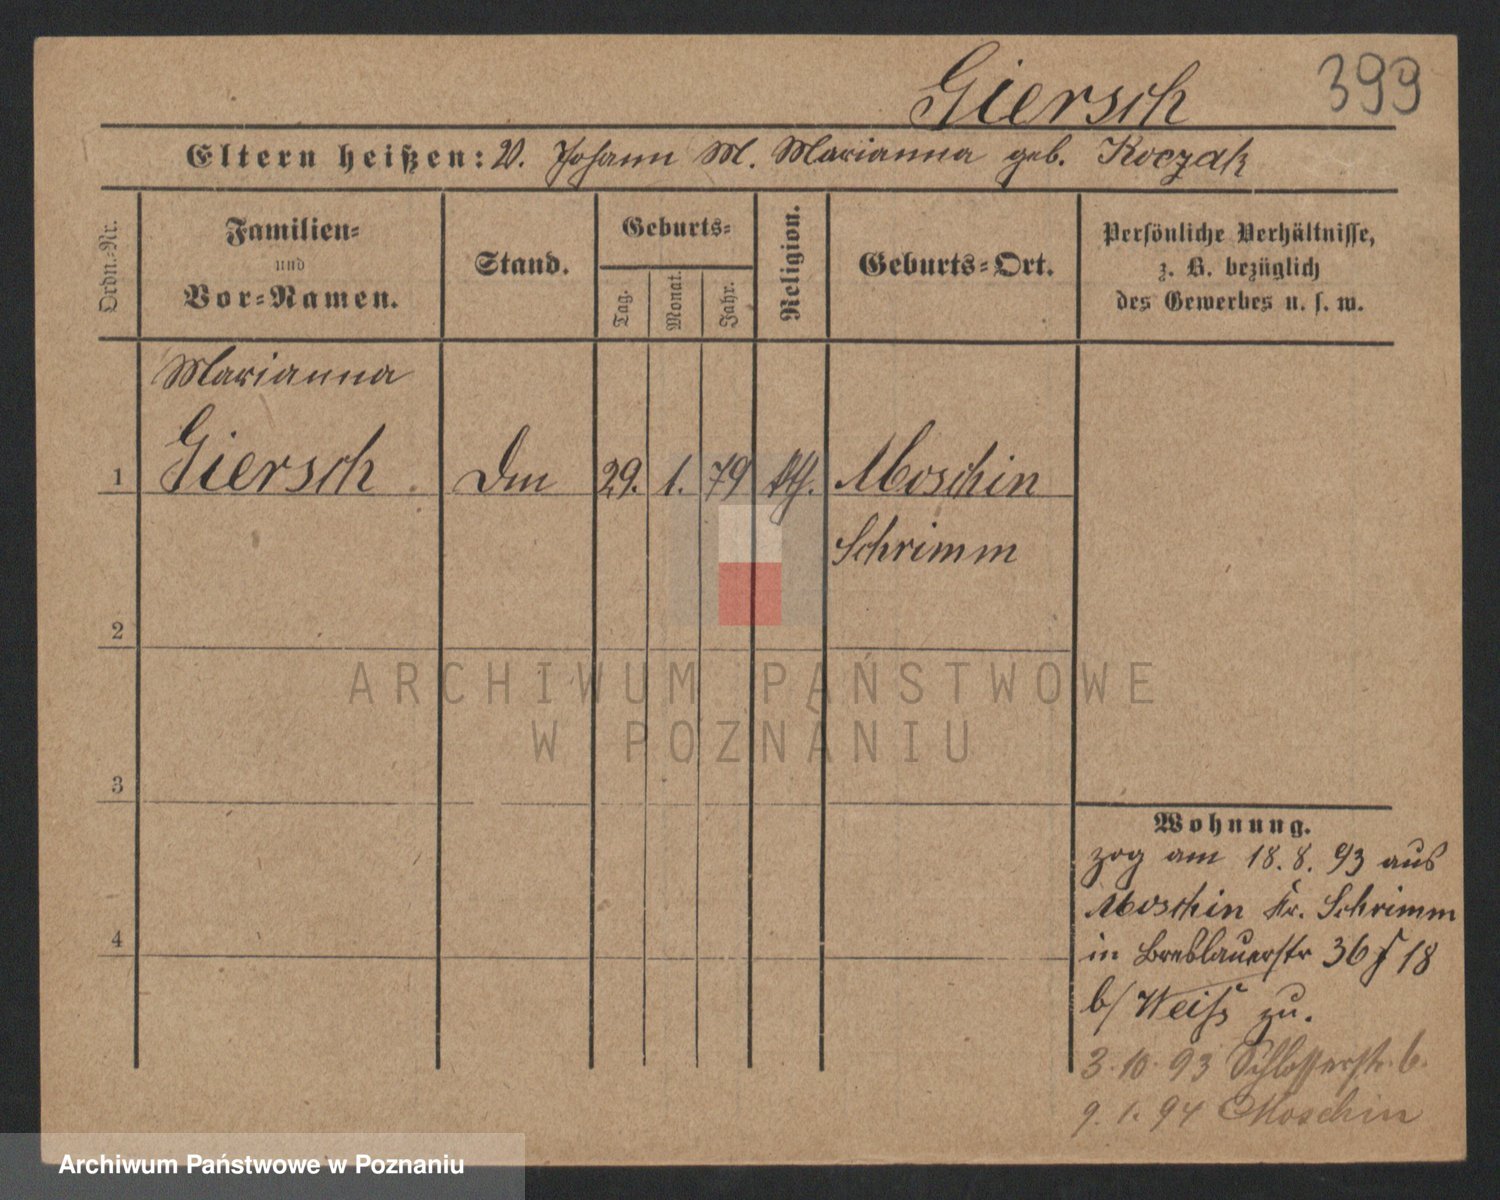 Giersch 399
Eltern heißen: V. Johann M. Marianna geb. Koczak
Ordn.-Nr.
Familien-
und
Vor-Namen.
Stand.
Geburts-
Tag.
Monat.
Jahr.
Religion.
Geburts-Ort.
Persönliche Verhältnisse,
z. B. bezüglich
des Gewerbes u. s. w.
Marianna
1 Giersch Dm 29. 1. 79 kth. Moschin
Schrimm
2
3
4
Wohnung.
zog am 18. 8. 93 aus
Moschin Kr. Schrimm
in Breslauerstr 36 / 18
b/ Weiß zu.
3. 10. 93 Schlosserstr. 6.
9. 1. 94 Moschin
ARCHIWUM PAŃSTWOWE
W POZNANIU
Archiwum Państwowe w Poznaniu